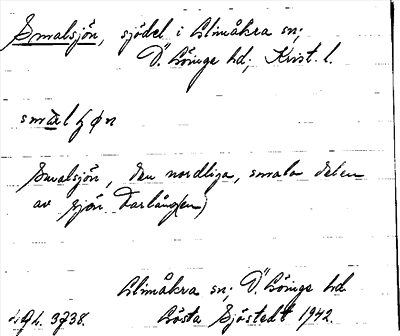 Smalsjön, sjödel i Glimåkra sn;
Ö. Göinge hd; Krist. l.
Smalsjön, den nordliga, smala delen
av sjön Farlång(en)
Glimåkra sn; Ö. Göinge hd
Gösta Sjöstedt 1942.
3738.